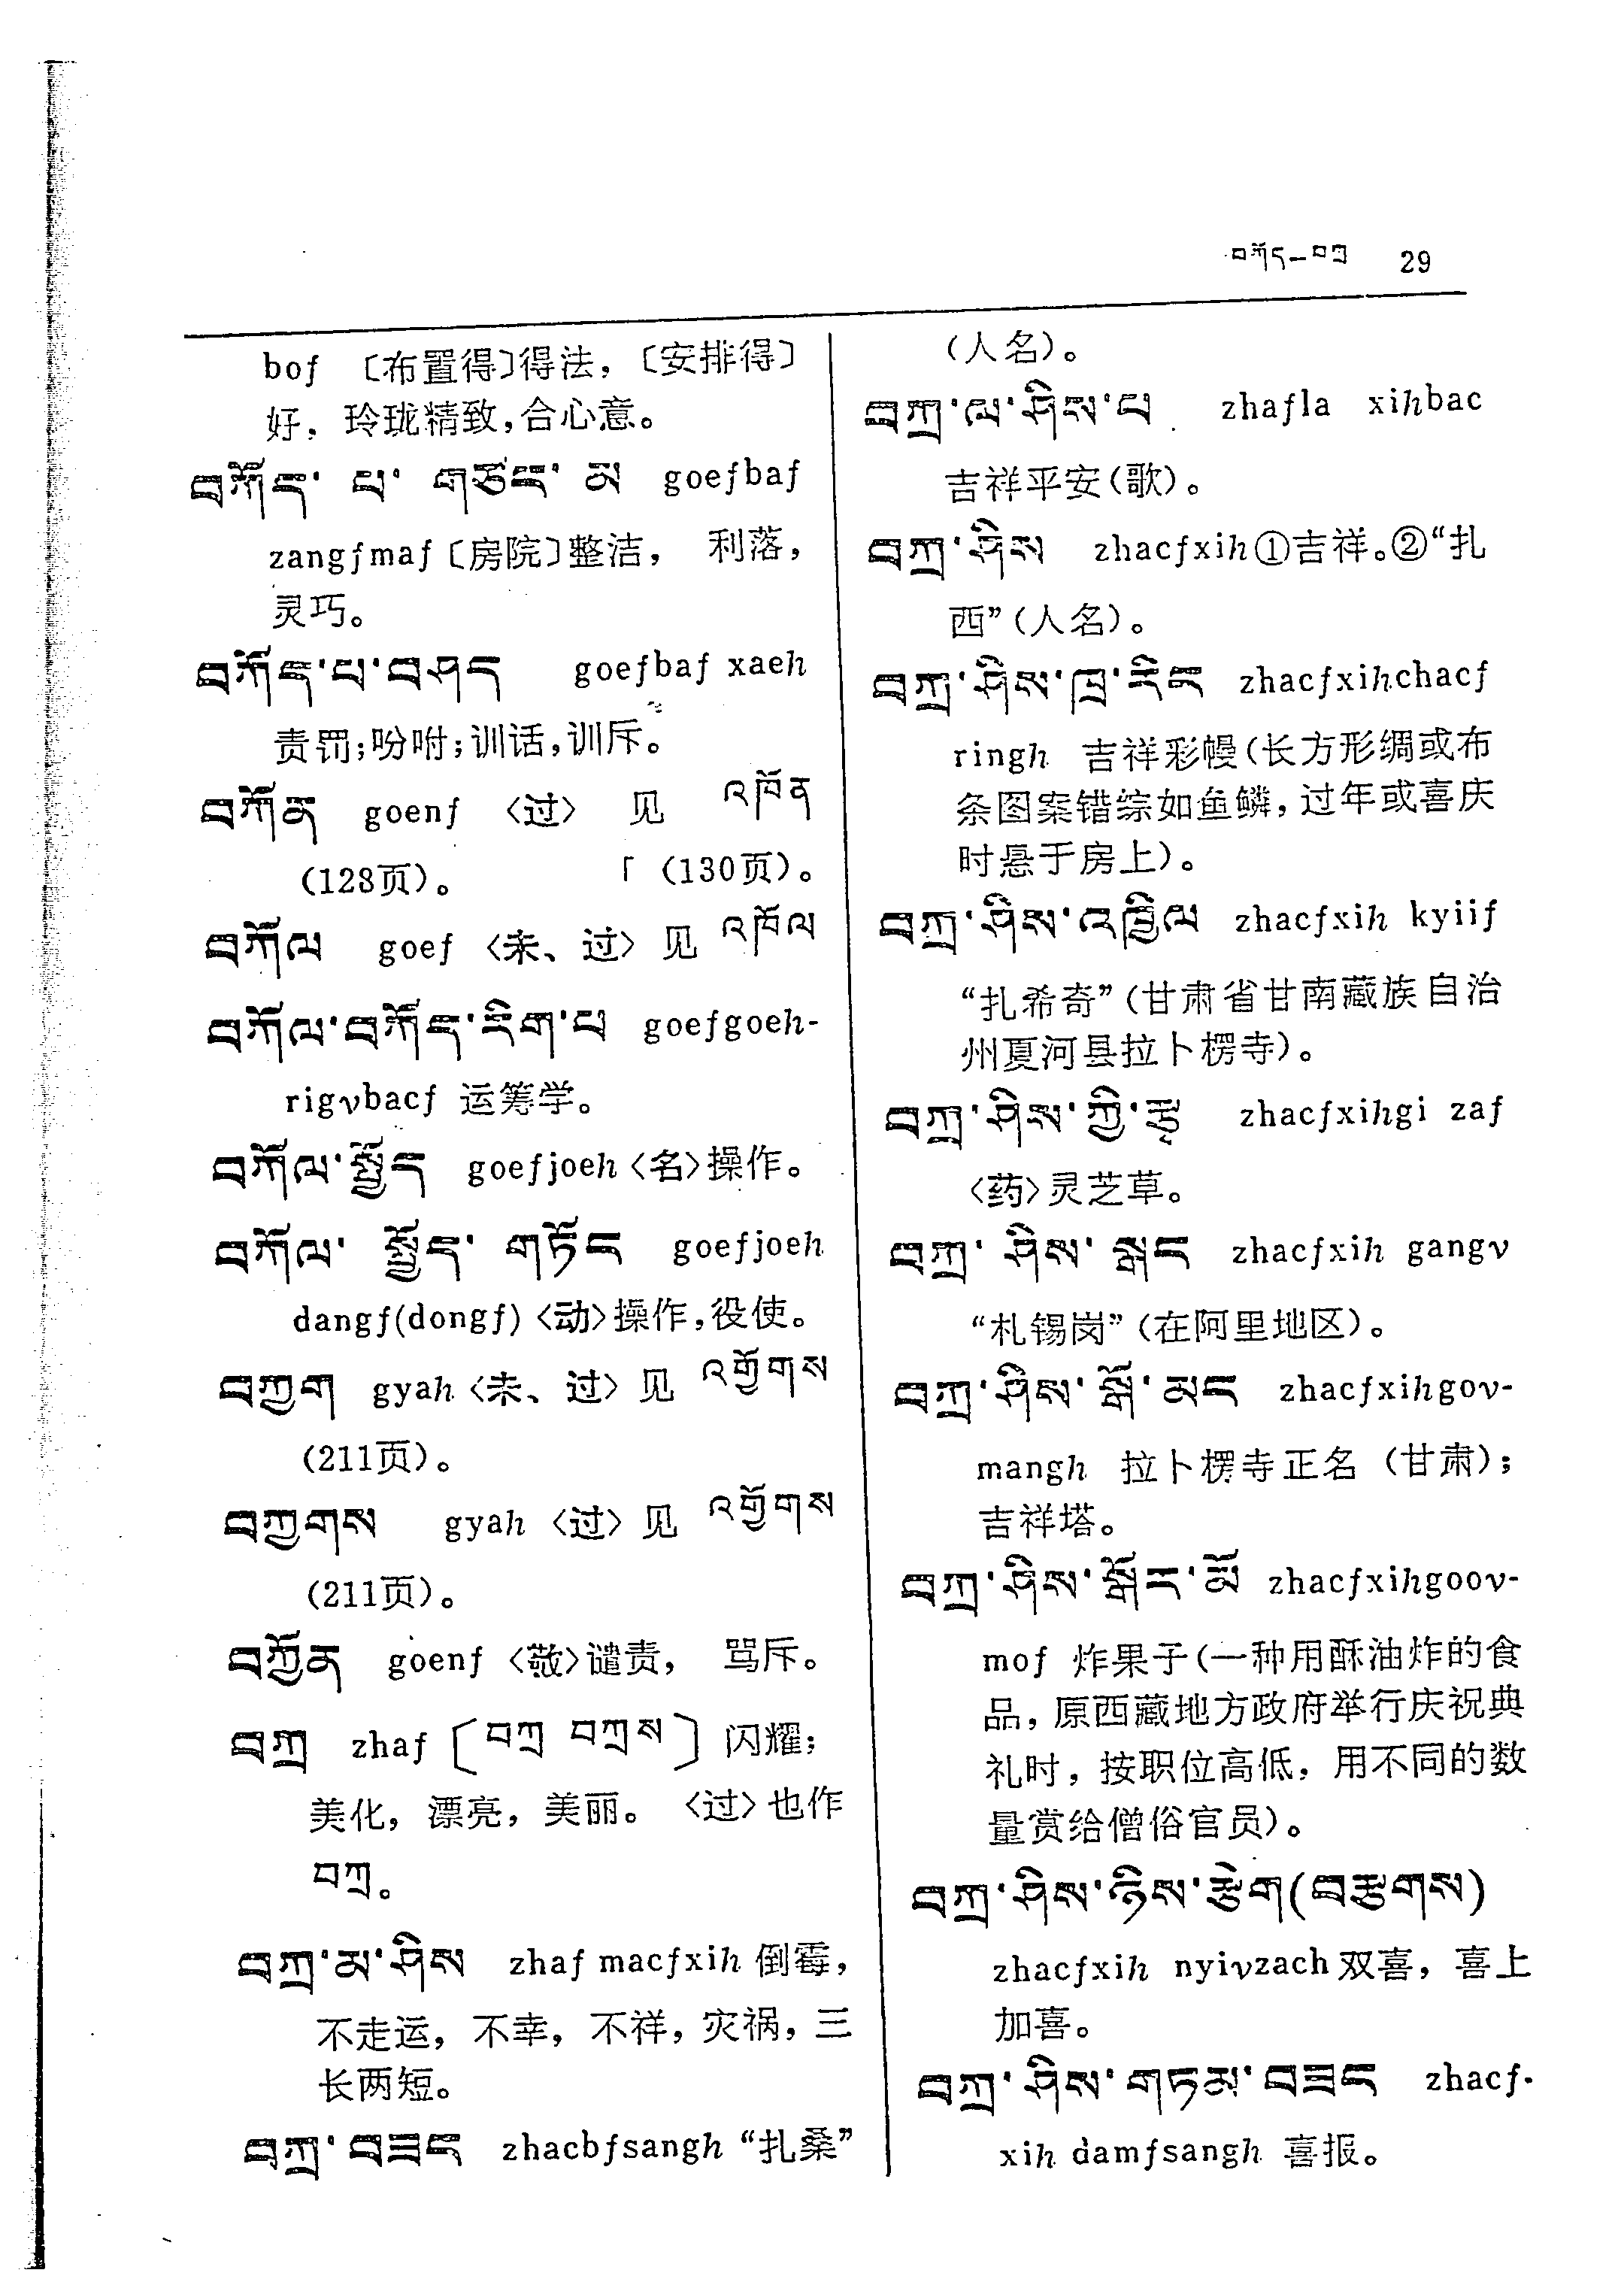 བཀོད—བཀྲ 29
bof 〔布置得〕得法，〔安排得〕
好，玲珑精致，合心意。
བཀོད་ པ་ གཙང་ མ goefbaf
zangfmaf〔房院〕整洁， 利落，
灵巧。
བཀོད་པ་བཤད goefbaf xaeh
责罚；吩咐；训话，训斥。
བཀོན goenf 〈过〉 见 འཁོན
（128页）。 「（130页）。
བཀོལ goef 〈未、过〉 见 འཁོལ
བཀོལ་བཀོད་རིག་པ goefgoeh-
rigvbacf 运筹学。
བཀོལ་སྤྱོད goefjoeh〈名〉操作。
བཀོལ་ སྤྱོད་ གཏོང goefjoeh
dangf(dongf)〈动〉操作，役使。
བཀྱག gyah〈未、过〉见 འགྱོགས
（211页）。
བཀྱགས gyah 〈过〉见 འགྱོགས
（211页）。
བཀྱོན goenf 〈敬〉谴责， 骂斥。
བཀྲ zhaf 〔བཀྲ བཀྲས〕 闪耀；
美化，漂亮，美丽。〈过〉也作
བཀྲ。
བཀྲ་མ་ཤིས zhaf macfxih 倒霉，
不走运，不幸，不祥，灾祸，三
长两短。
བཀྲ་བཟང zhacbfsangh “扎桑”
（人名）。
བཀྲ་ལ་ཤིས་པ zhafla xihbac
吉祥平安（歌）。
བཀྲ་ཤིས zhacfxih①吉祥。②“扎
西”（人名）。
བཀྲ་ཤིས་ཁྲ་རིང zhacfxihchacf
ringh 吉祥彩幔（长方形绸或布
条图案错综如鱼鳞，过年或喜庆
时悬于房上）。
བཀྲ་ཤིས་འཁྱིལ zhacfxih kyiif
“扎希奇”（甘肃省甘南藏族自治
州夏河县拉卜楞寺）。
བཀྲ་ཤིས་ཀྱི་རྩྭ zhacfxihgi zaf
〈药〉灵芝草。
བཀྲ་ ཤིས་ སྒང zhacfxih gangv
“札锡岗”（在阿里地区）。
བཀྲ་ཤིས་ སྒོ་ མང zhacfxihgov-
mangh 拉卜楞寺正名（甘肃）；
吉祥塔。
བཀྲ་ཤིས་སྒོར་མོ zhacfxihgoov-
mof 炸果子（一种用酥油炸的食
品，原西藏地方政府举行庆祝典
礼时，按职位高低，用不同的数
量赏给僧俗官员）。
བཀྲ་ཤིས་ཉིས་རྩེག（བརྩེགས）
zhacfxih nyivzach 双喜，喜上
加喜。
བཀྲ་ཤིས་གཏམ་བཟང zhacf-
xih damfsangh 喜报。